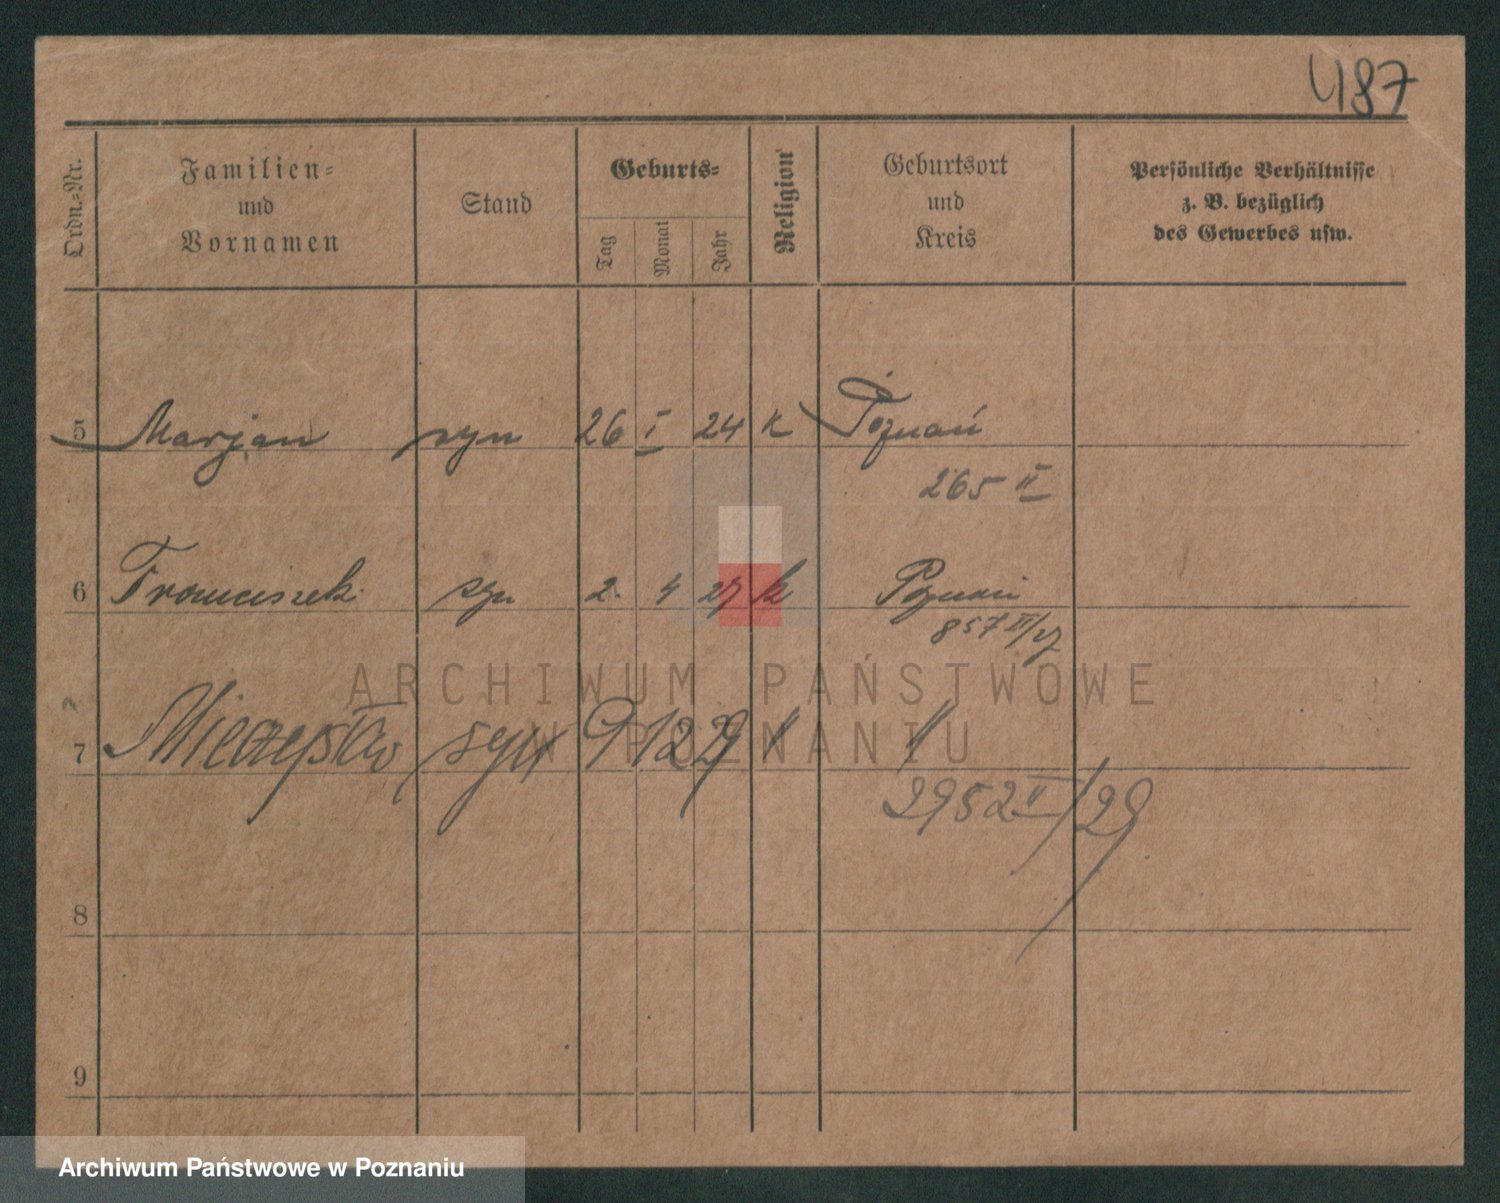 487
Ordn.=Nr.
Familien=
und
Vornamen
Stand
Geburts=
Tag
Monat
Jahr
Religion
Geburtsort
und
Kreis
Persönliche Verhältnisse
z. B. bezüglich
des Gewerbes usw.
5 Marjan syn 26 I 24 k Poznań
265 II
6 Franciszek syn 2. 4 27 k Poznań
857 II/27
ARCHIWUM PAŃSTWOWE
W POZNANIU
7 Mieczysław syn 9 12 29 " "
2952 II/29
8
9
Archiwum Państwowe w Poznaniu